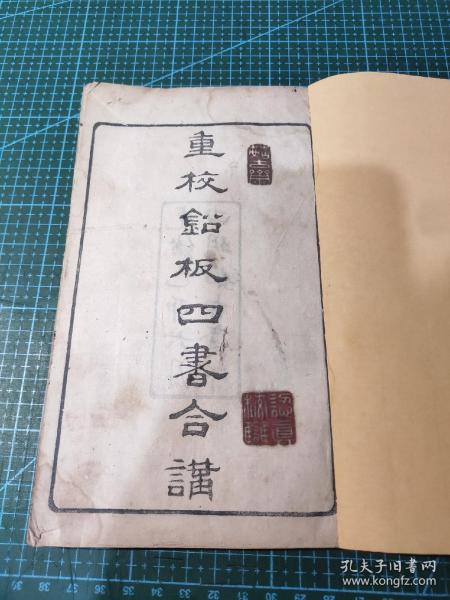 重校鉛板四書合講
認真
校讎
孔夫子旧书网
www.kongfz.com